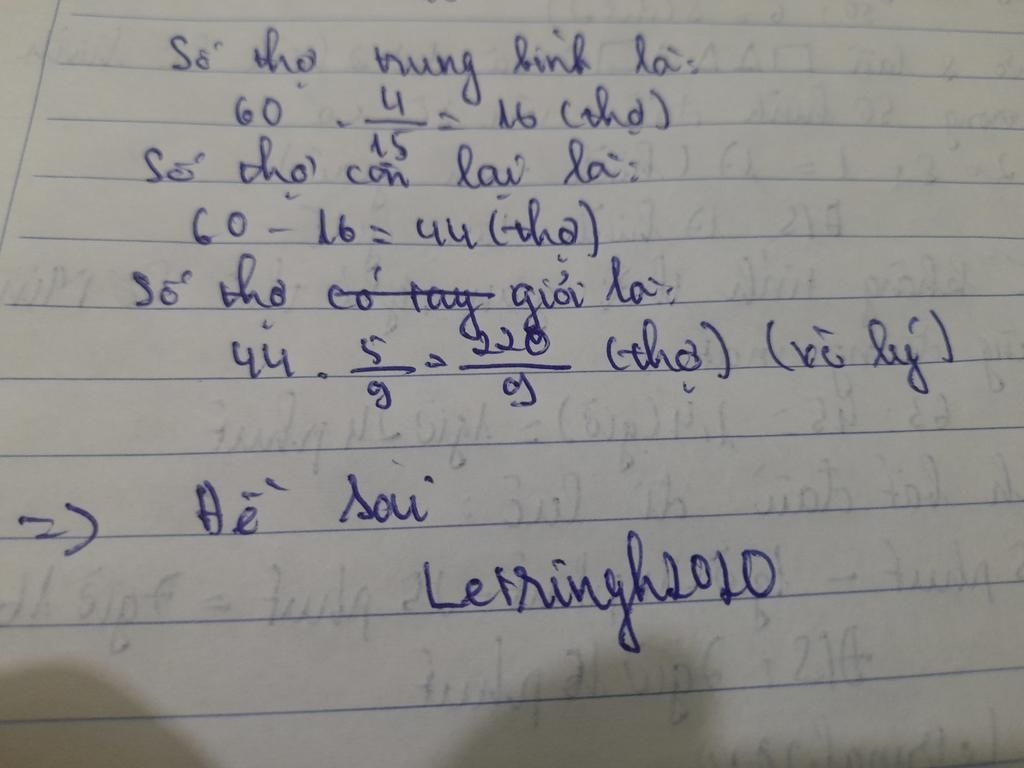 Số thợ trung bình là:
60 . 4/15 = 16 (thợ)
Số thợ còn lại là:
60 - 16 = 44 (thợ)
Số thợ có tay giỏi là:
44 . 5/9 = 220/9 (thợ) (vô lý)
=> Đề sai